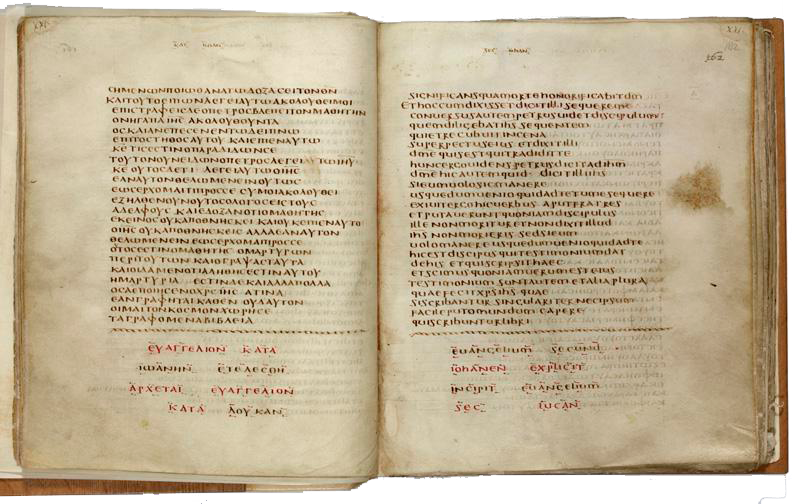 ΣΗΜΕΝΩΝΠΟΙΩΘΑΝΑΤΩΔΟΞΑΣΕΙΤΟΝΘΝ
ΚΑΙΤΟΥΤΟΕΙΠΩΝΛΕΓΕΙΑΥΤΩΑΚΟΛΟΥΘΕΙΜΟΙ
ΕΠΙΣΤΡΑΦΕΙΣΔΕΟΠΕΤΡΟΣΒΛΕΠΕΙΤΟΝΜΑΘΗΤΗΝ
ΟΝΗΓΑΠΑΙΗΣ ΑΚΟΛΟΥΘΟΥΝΤΑ
ΟΣΚΑΙΑΝΕΠΕΣΕΝΕΝΤΩΔΕΙΠΝΩ
ΕΠΙΤΟΣΤΗΘΟΣΑΥΤΟΥ ΚΑΙΕΙΠΕΝΑΥΤΩ
ΚΕΤΙΣΕΣΤΙΝΟΠΑΡΑΔΙΔΩΝΣΕ
ΤΟΥΤΟΝΟΥΝΕΙΔΩΝΟΠΕΤΡΟΣΛΕΓΕΙΑΥΤΩΙΗΥ
ΚΕΟΥΤΟΣΔΕΤΙ ΛΕΓΕΙΑΥΤΩΟΙΗΣ
ΕΑΝΑΥΤΟΝΘΕΛΩΜΕΝΕΙΝΟΥΤΩΣ
ΕΩΣΕΡΧΟΜΑΙΤΙΠΡΟΣΣΕ ΣΥΜΟΙΑΚΟΛΟΥΘΕΙ
ΕΞΗΛΘΕΝΟΥΝΟΥΤΟΣΟΛΟΓΟΣΕΙΣΤΟΥΣ
ΑΔΕΛΦΟΥΣ ΚΑΙΕΔΟΞΑΝΟΤΙΟΜΑΘΗΤΗΣ
ΕΚΕΙΝΟΣΟΥΚΑΠΟΘΝΗΣΚΕΙ ΚΑΙΟΥΚΕΙΠΕΝΑΥΤΟ
ΟΙΗΣΟΥΚΑΠΟΘΝΗΣΚΕΙΣ ΑΛΛΑΕΑΝΑΥΤΟΝ
ΘΕΛΩΜΕΝΕΙΝΕΩΣΕΡΧΟΜΑΠΡΟΣΣΕ
ΟΤΟΣΕΣΤΙΝΟΜΑΘΗΤΗΣ ΟΜΑΡΤΥΡΩΝ
ΠΕΡΙΤΟΥΤΩΝ ΚΑΙΟΓΡΑΨΑΣΤΑΥΤΑ
ΚΑΙΟΙΔΑΜΕΝΟΤΙΑΛΗΘΗΣΕΣΤΙΝΑΥΤΟΥ
ΗΜΑΡΤΥΡΙΑ ΕΣΤΙΝΔΕΚΑΙΑΛΛΑΠΟΛΛΑ
ΟΣΑΕΠΟΙΗΣΕΝΟΧΡΣΙΗΣ ΑΤΙΝΑ
ΕΑΝΓΡΑΦΗΤΑΙΚΑΘΕΝ ΟΥΔΑΥΤΟΝ
ΟΙΜΑΙΤΟΝΚΟΣΜΟΝΧΩΡΗΣΕ
ΤΑΓΡΑΦΟΜΕΝΑΒΙΒΛΕΙΑ
ΕΥΑΓΓΕΛΙΟΝ ΚΑΤΑ
ΙΩΑΝΗΝ ΕΤΕΛΕΣΘΗ
ΑΡΧΕΤΑΙ ΕΥΑΓΓΕΛΙΟΝ
ΚΑΤΑ ΛΟΥΚΑΝ
162
significansquamortehonorificabitdm
Ethoccumdixissetdicitillisequereme
conuersusautempetrusuidetdiscipulum
quemdiligebatihs sequentem
quietrecubuitincena
superpectuseius etdixitilli
dmequisestquitraditte
huncergouidenspetrusdicitadihm
dmehicautemquid· dicitilliihs
sieumuolosicmanere
usquedumuenioquidadtetumesequere
exiuitergohicuerbus aputfratres
etputauerunt quoniamdiscipulus
illenonmorituretnondixitillud
ihs nonmorieris sedsieum
uolomanereusquedumuenioquidadte
hicestdiscipus quitestimoniumdat
dehis etquiscripsithaec
etscimusquoniamuerumesteius
testimonium suntautemetaliaplura
quaefecitxpsihs quae
siscribantur singulariternecipsum
facileputomundumcapere
quiscribunturlibri
euangelium secund
iohanen explicit
incipit euangelium
sec lucan